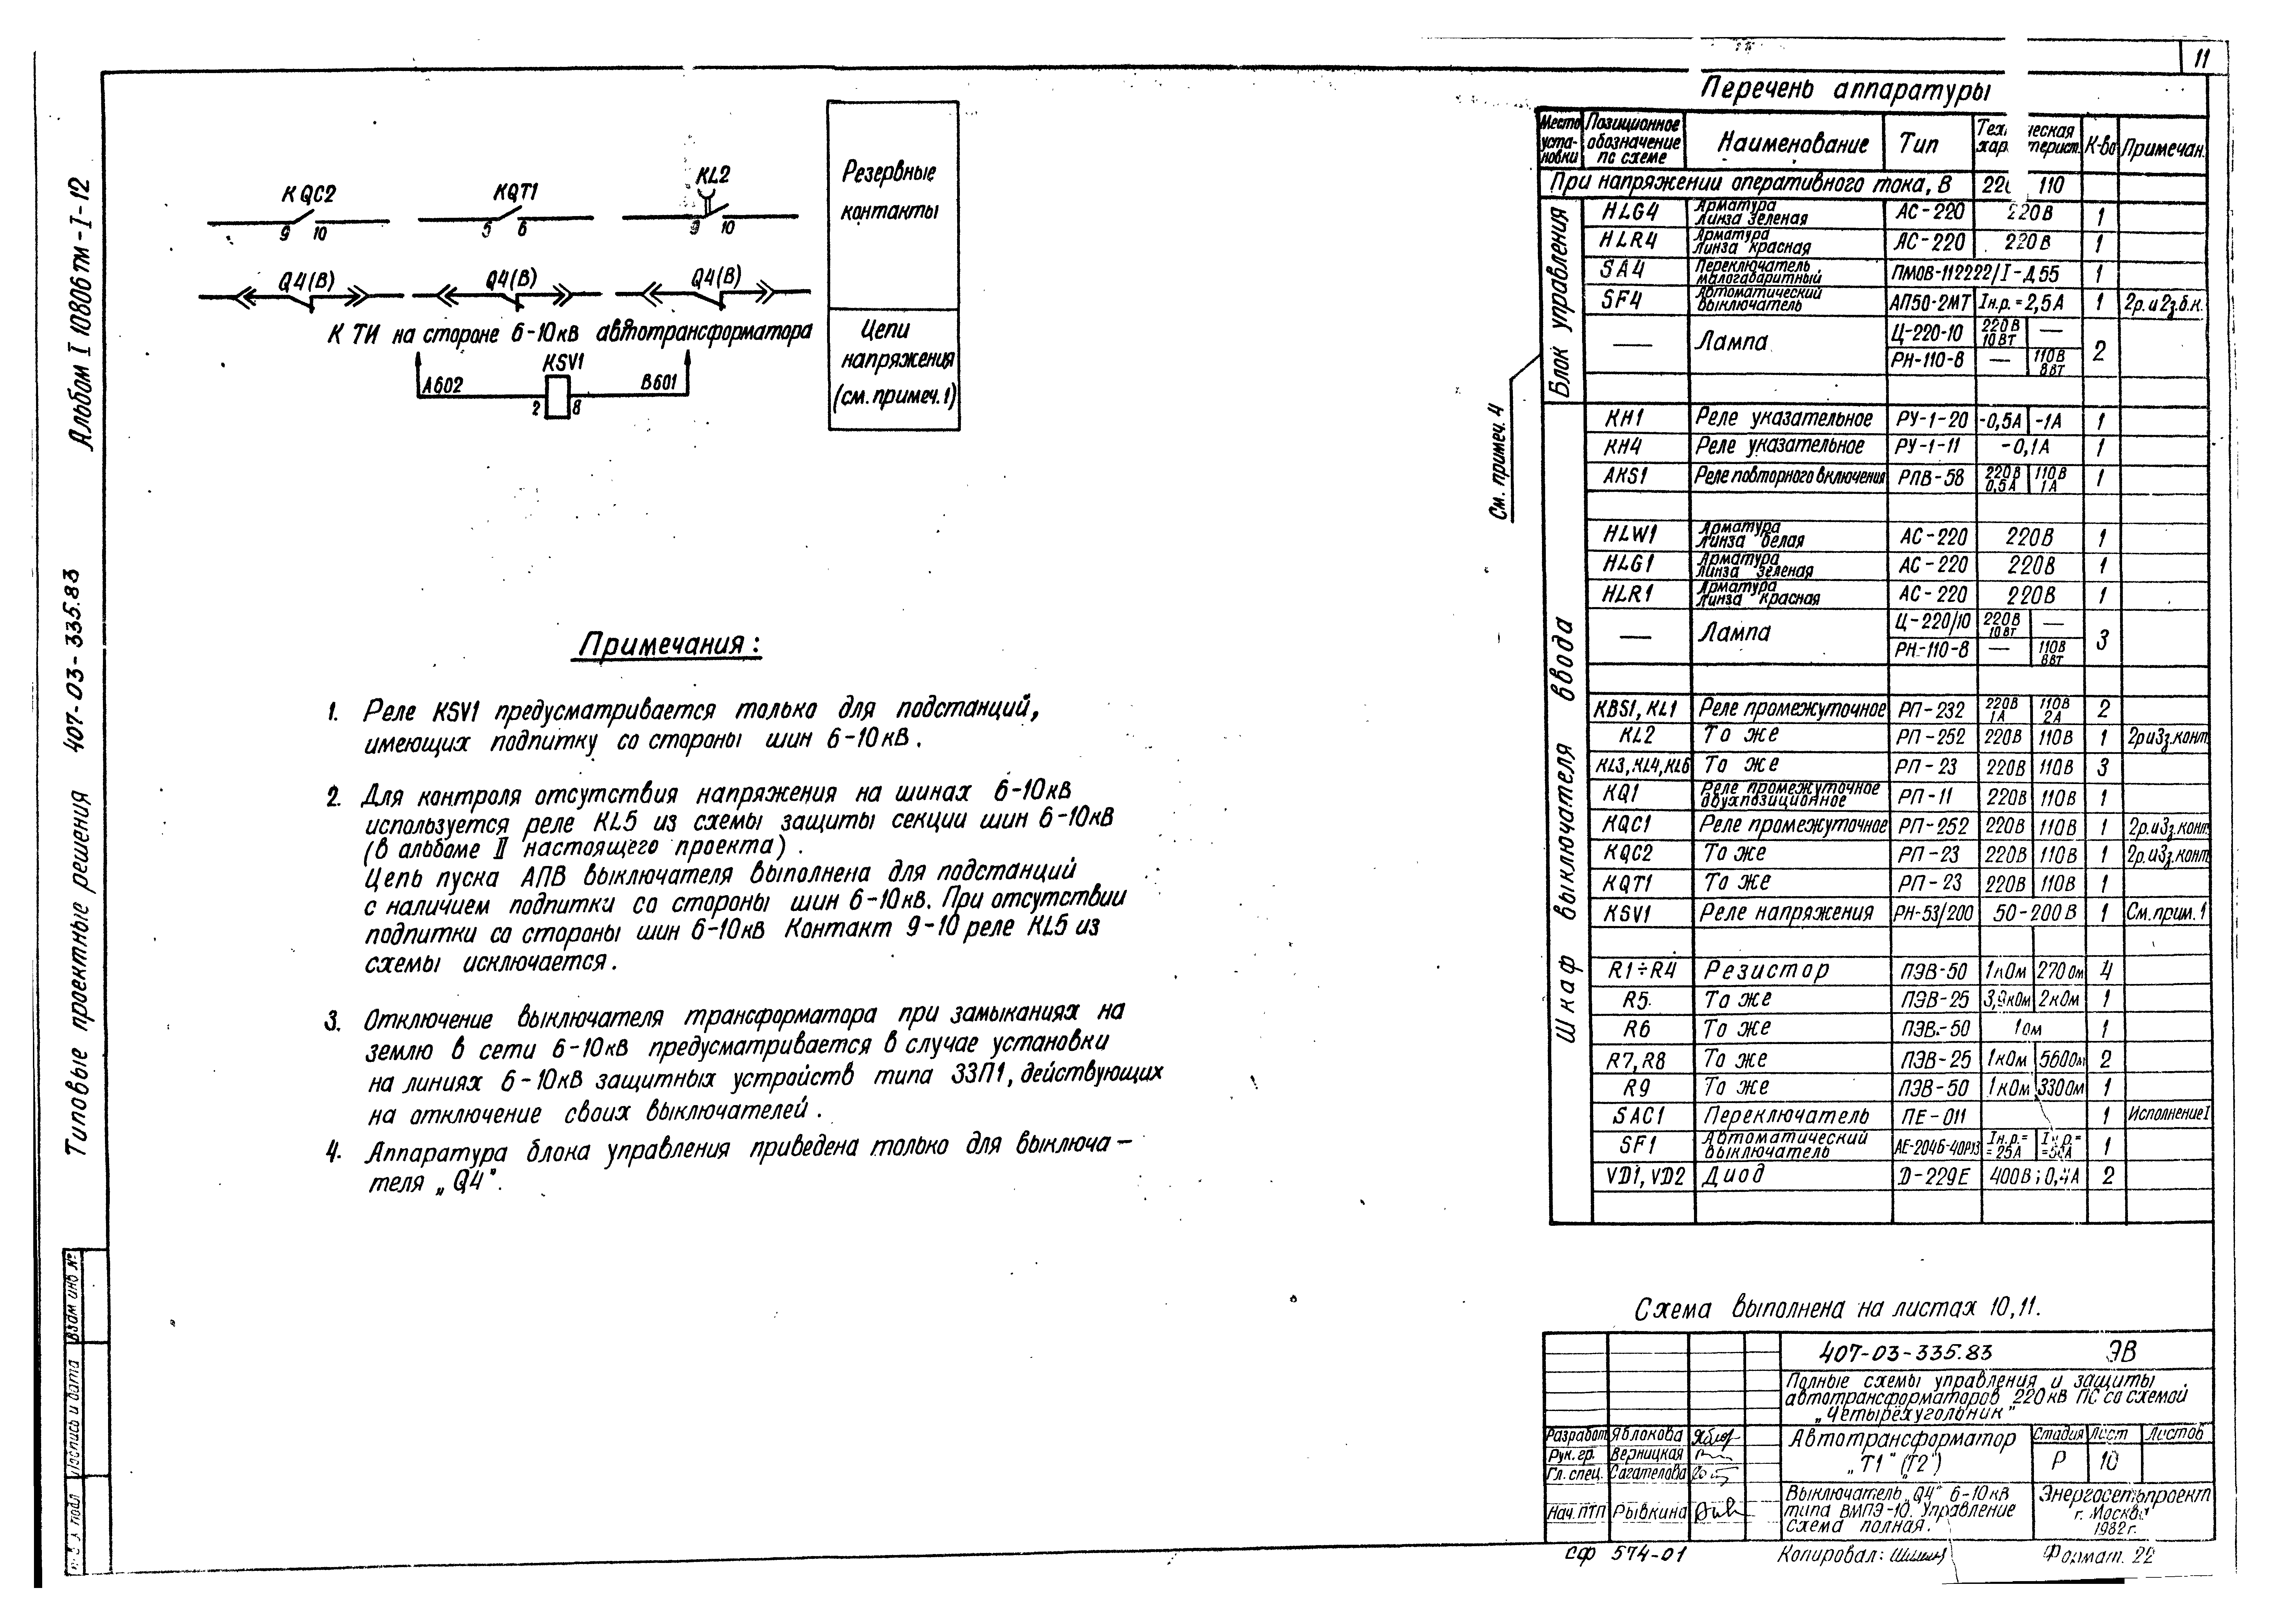 11
Альбом I 10806тм-I-12
Типовые проектные решения 407-03-335.83
KQC2
9 10
KQT1
5 6
KL2
9 10
Q4(В)
Q4(В)
Q4(В)
Резервные
контакты
К ТИ на стороне 6-10кВ автотрансформатора
KSV1
А602
2
8
В601
Цепи
напряжения
(см. примеч. 1)
Примечания:
1. Реле KSV1 предусматривается только для подстанций,
имеющих подпитку со стороны шин 6-10кВ.
2. Для контроля отсутствия напряжения на шинах 6-10кВ
используется реле KL5 из схемы защиты секции шин 6-10кВ
(в альбоме II настоящего проекта).
Цепь пуска АПВ выключателя выполнена для подстанций
с наличием подпитки со стороны шин 6-10кВ. При отсутствии
подпитки со стороны шин 6-10кВ Контакт 9-10 реле KL5 из
схемы исключается.
3. Отключение выключателя трансформатора при замыканиях на
землю в сети 6-10кВ предусматривается в случае установки
на линиях 6-10кВ защитных устройств типа ЗЗП1, действующих
на отключение своих выключателей.
4. Аппаратура блока управления приведена только для выключа-
теля „Q4".
Перечень аппаратуры
Место установки Позиционное обозначение по схеме Наименование Тип К-во Примечан.
При напряжении оперативного тока, В 110
См. примеч. 4
Блок управления
HLG4 Арматура линза зеленая АС-220 220В 1
HLR4 Арматура линза красная АС-220 220В 1
SA4 Переключатель малогабаритный ПМОВ-112222/I-Д55 1
SF4 Автоматический выключатель АП50-2МТ Iн.р.=2,5А 1 2р. и 2з.б.к.
— Лампа Ц-220-10 220В 10Вт — 2
РН-110-8 — 110В 8Вт
Шкаф выключателя ввода
KH1 Реле указательное РУ-1-20 -0,5А -1А 1
KH4 Реле указательное РУ-1-11 -0,1А 1
AKS1 Реле повторного включения РПВ-58 220В 0,5А 110В 1А 1
HLW1 Арматура линза белая АС-220 220В 1
HLG1 Арматура линза зеленая АС-220 220В 1
HLR1 Арматура линза красная АС-220 220В 1
— Лампа Ц-220/10 220В 10Вт — 3
РН-110-8 — 110В 8Вт
KBS1, KL1 Реле промежуточное РП-232 220В 1А 110В 2А 2
KL2 То же РП-252 220В 110В 1 2р и 3з.конт
KL3, KL4, KL6 То же РП-23 220В 110В 3
KQ1 Реле промежуточное двухпозиционное РП-11 220В 110В 1
KQC1 Реле промежуточное РП-252 220В 110В 1 2р. и 3з.конт
KQC2 То же РП-23 220В 110В 1 2р. и 3з.конт
KQT1 То же РП-23 220В 110В 1
KSV1 Реле напряжения РН-53/200 50-200В 1 См. прим. 1
R1÷R4 Резистор ПЭВ-50 1кОм 270Ом 4
R5 То же ПЭВ-25 3,9кОм 2кОм 1
R6 То же ПЭВ-50 1Ом 1
R7, R8 То же ПЭВ-25 1кОм 560Ом 2
R9 То же ПЭВ-50 1кОм 330Ом 1
SAC1 Переключатель ПЕ-011 1 Исполнение I
SF1 Автоматический выключатель Iн.р.= =25А 1
VD1, VD2 Диод D-229Е 400В; 0,4А 2
Схема выполнена на листах 10,11.
407-03-335.83 ЭВ
Полные схемы управления и защиты
автотрансформаторов 220кВ ПС со схемой
„Четырехугольник"
Разработ Яблокова
Рук.гр. Верницкая
Гл. спец. Сагателова
Нач. ПТП Рывкина
Автотрансформатор
„Т1" („Т2")
Стадия Лист Листов
Р 10
Выключатель „Q4" 6-10кВ
типа ВМПЭ-10. Управление
Схема полная.
Энергосетьпроект
г. Москва
1982г.
СФ 574-01 Копировал: Формат. 22
Взам инв №
Подпись и дата
подл